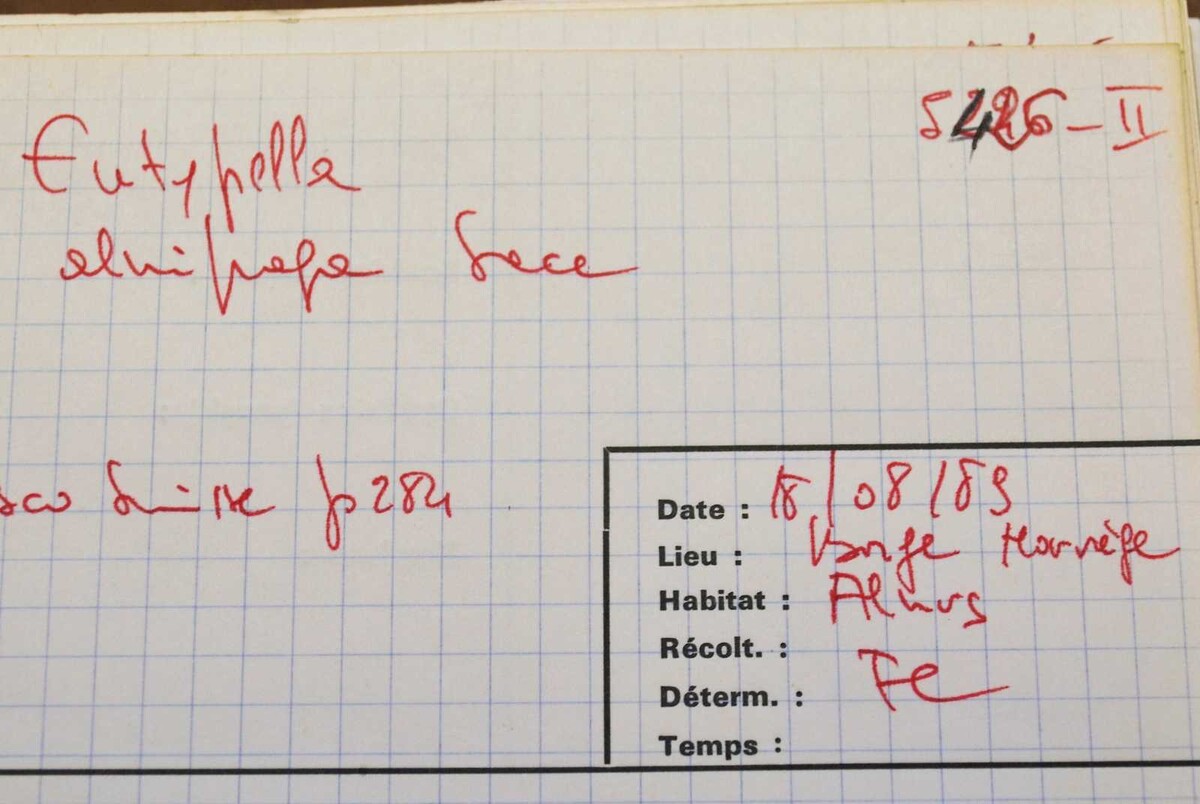 5426-II
Eutypella
alnifraga Sacc
sco Suisse p 284
Date : 18/08/89
Lieu : Norvège
Habitat : Alnus
Récolt. :
Déterm. : FC
Temps :